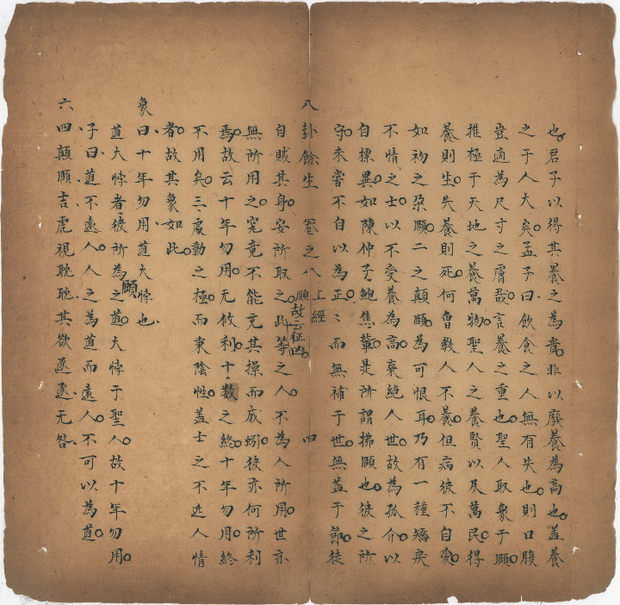 也君子以得其養之為貴非以廢養為高也蓋養
之于人大矣孟子曰飲食之人無有失也則口腹
豈適為尺寸之膚哉言養之重也聖人取象于頤
推極于天地之養萬物聖人之養賢以及萬民得
養則生失養則死何曾教人不養但病徒不自愛
如初之朶頤二之顛頤為可恨耳乃有一種矯戾
不情之士以不受養為高棄絕人世故為孤介以
自標異如陳仲子鮑焦輩是所謂拂頤也彼之所
守未嘗不自以為正〻而無補于世無益于節徒
八卦餘生 卷之八 上經 頤 四
自賊其身安所取之故云征凶此等之人不為人所用世亦
無所用之究竟不能充其操而成蚓彼亦何所利
焉故云十年勿用无攸利十數之終十年勿用終
不用矣三處動之極而東陰性蓋士之不近人情
者故其象如此
象曰十年勿用道大悖也
道大悖者彼所為之頤道大悖于聖人故十年勿用
子曰道不遠人人之為道而遠人不可以為道
六四顛頤吉虎視眈眈其欲逐逐无咎